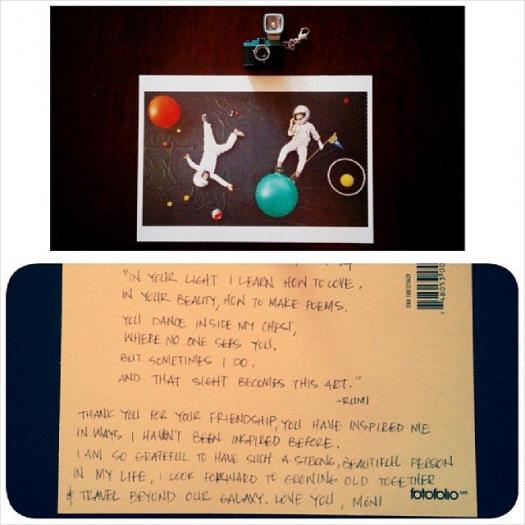 "IN YOUR LIGHT I LEARN HOW TO LOVE.
IN YOUR BEAUTY, HOW TO MAKE POEMS.
YOU DANCE INSIDE MY CHEST,
WHERE NO ONE SEES YOU.
BUT SOMETIMES I DO.
AND THAT SIGHT BECOMES THIS ART."
-RUMI
THANK YOU FOR YOUR FRIENDSHIP, YOU HAVE INSPIRED ME
IN WAYS I HAVN'T BEEN INSPIRED BEFORE.
I AM SO GRATEFUL TO HAVE SUCH A STRONG, BEAUTIFUL PERSON
IN MY LIFE, I LOOK FORWARD TO GROWING OLD TOGETHER
& TRAVEL BEYOND OUR GALAXY. LOVE YOU, MONI
fotofolio.com